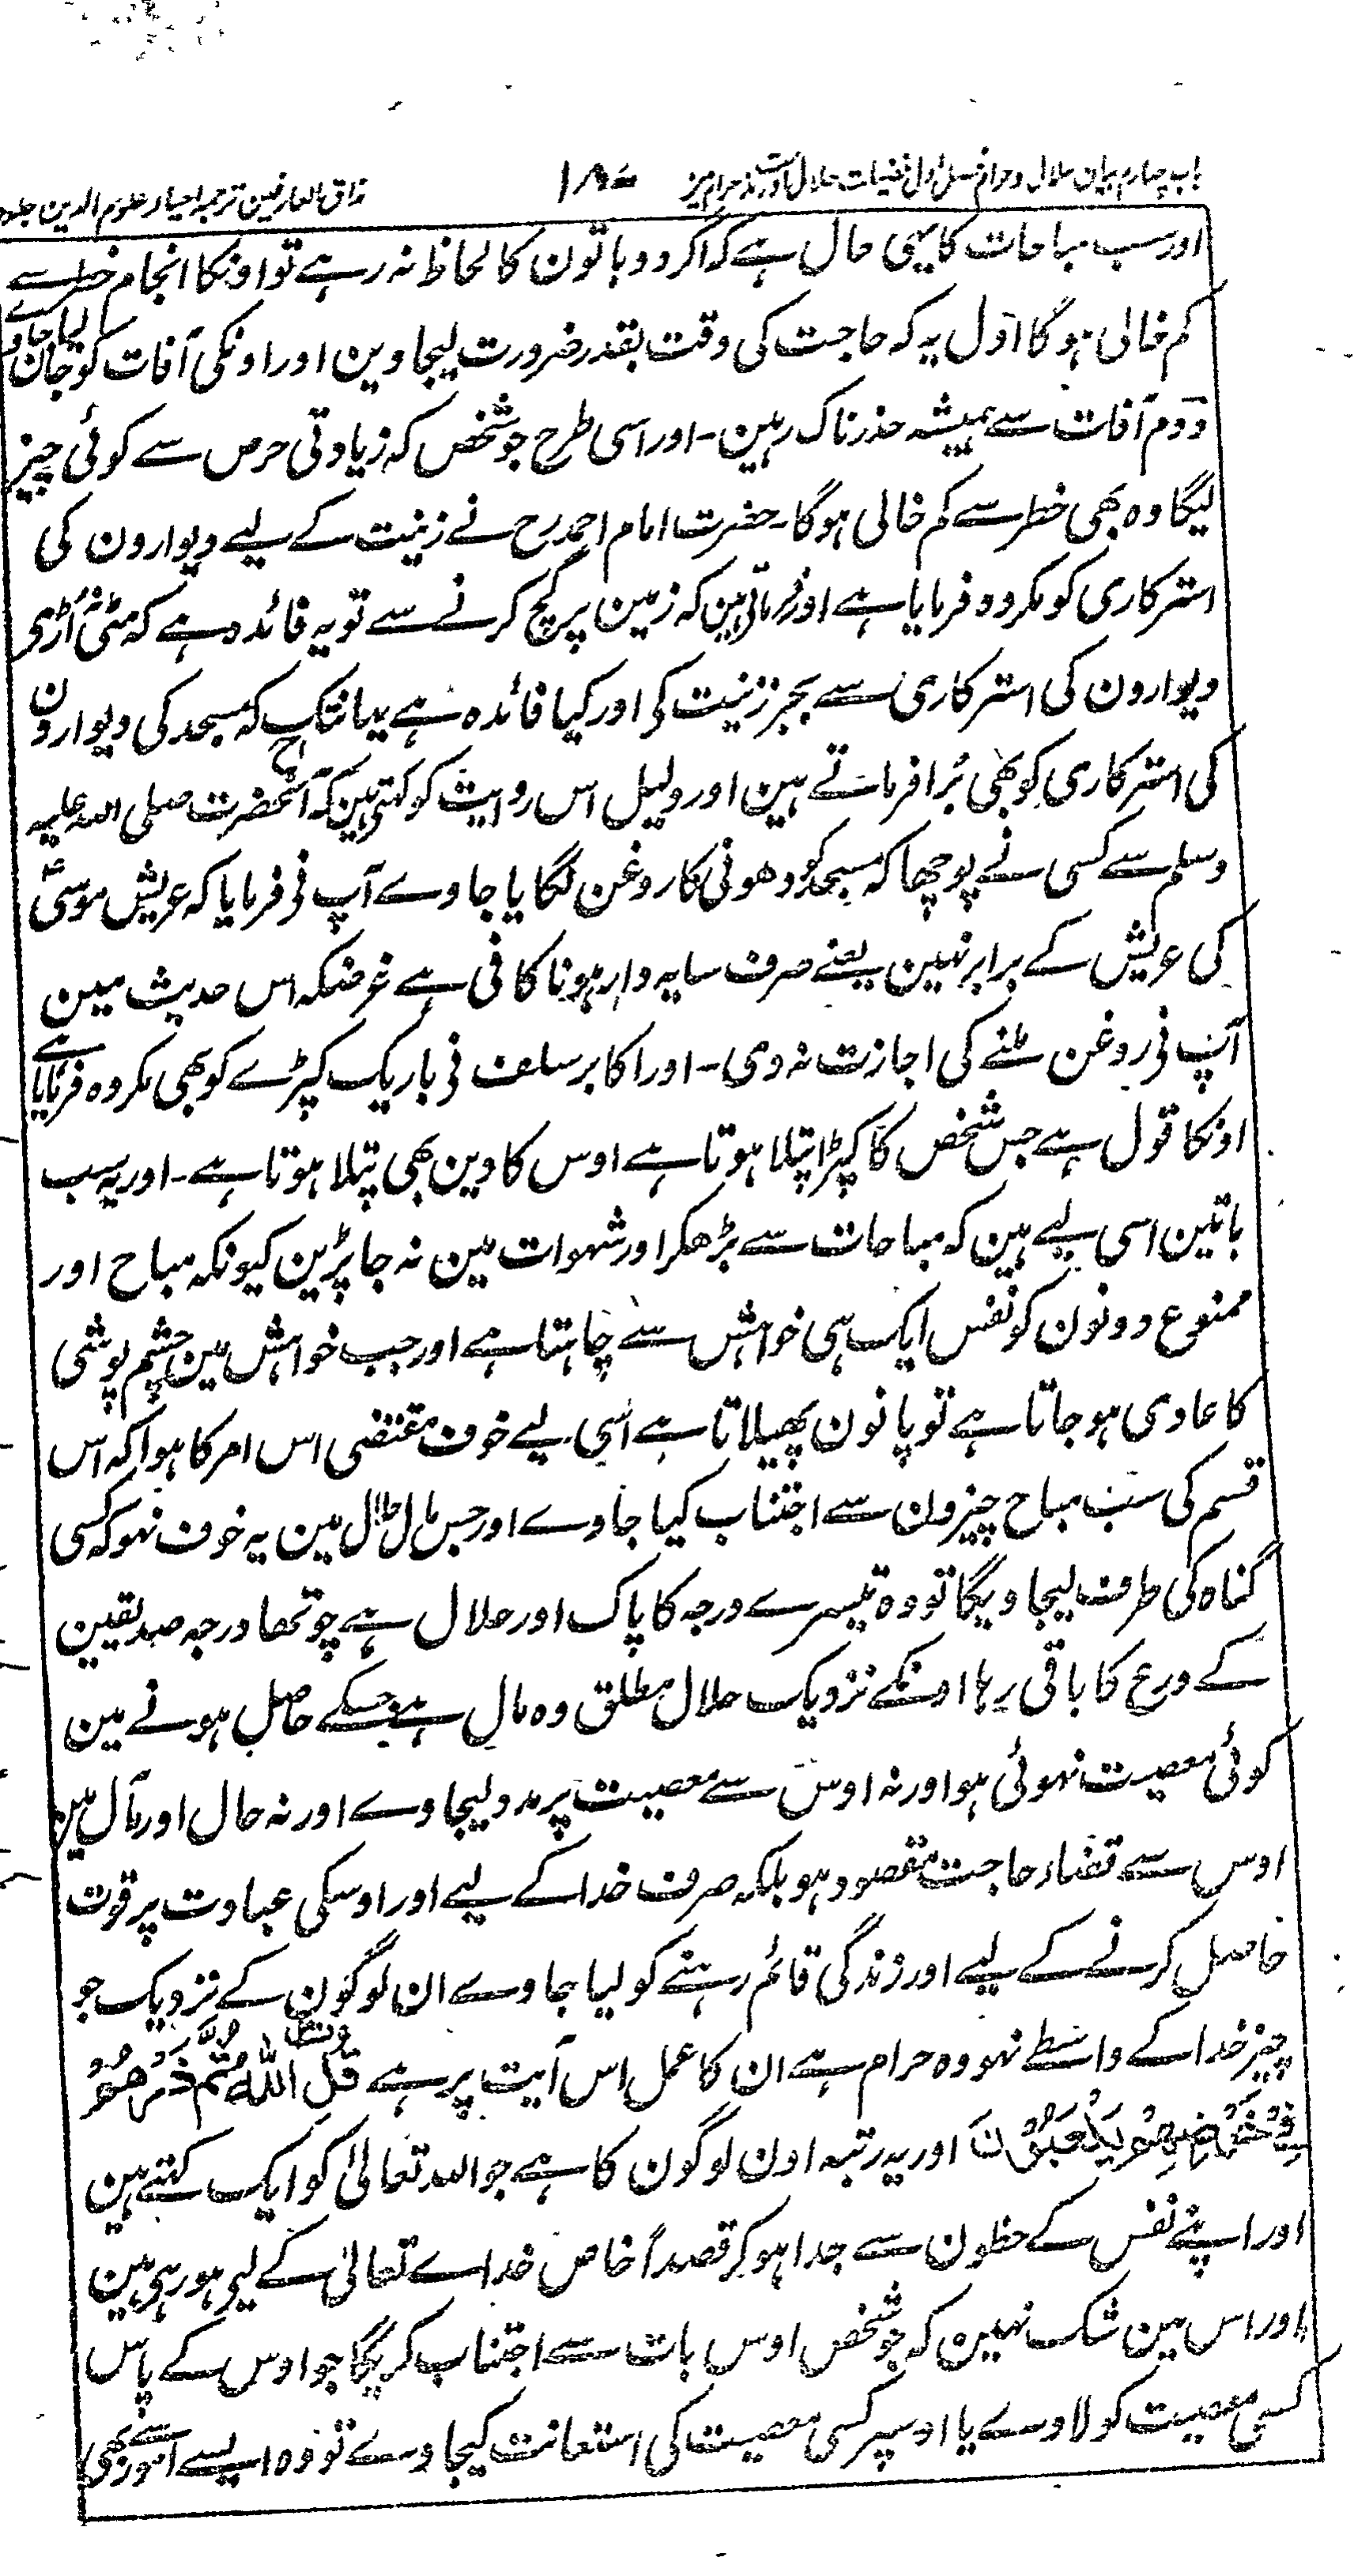 باب چہارم بیان حلال و حرام فصل اول فضیلت حلال اور مذمت حرام میں
۱۸۰
مذاق العارفین ترجمہ احیاء علوم الدین جلد دوم
اور سب مباحات کا یہی حال ہے کہ اگر دو باتون کا لحاظ نہ رہے تو اونکا انجام خطر سے
کم خالی ہو گا اول یہ کہ حاجت کی وقت بقدر ضرورت لیجاوین اور اونکی آفات کو جان لیا جاوے
دوم آفات سے ہمیشہ حذرناک رہین۔ اور اسی طرح جو شخص کہ زیادتی حرص سے کوئی چیز
لیگا وہ بھی خطر سے کم خالی ہوگا۔ حضرت امام احمد رح نے زینت کے لیے دیوارون کی
استرکاری کو مکروہ فرمایا ہے اور فرماتی ہین کہ زمین پر گچ کرنے سے تو یہ فائدہ ہے کہ مٹی نہ اُڑے
دیوارون کی استرکاری سے بجز زینت کی اور کیا فائدہ ہے یہانتک کہ مسجد کی دیوارون
کی استرکاری کو بھی بُرا فرماتے ہین اور دلیل اس روایت کو کہتی ہین کہ آنحضرت صلی اللہ علیہ
وسلم سے کسی نے پوچھا کہ مسجد کو دھونی کا روغن لگایا جاوے آپ نی فرمایا کہ عریش موسیٰؑ
کی عریش کے برابر نہین یعنے صرف سایہ دار ہونا کافی ہے غرضکہ اس حدیث مین
آپ نی روغن ملنے کی اجازت نہ دی۔ اور اکابر سلف نی باریک کپڑے کو بھی مکروہ فرمایا ہے
اونکا قول ہے جس شخص کا کپڑا پتلا ہوتا ہے اوس کا دین بھی پتلا ہوتا ہے۔ اور یہ سب
باتین اسی لیے ہین کہ مباحات سے بڑھکر اور شہوات مین نہ جا پڑین کیونکہ مباح اور
ممنوع دونون کو نفس ایک ہی خواہش سے چاہتا ہے اور جب خواہش مین چشم پوشی
کا عادی ہو جاتا ہے تو پانون پھیلاتا ہے اسی لیے خوف مقتضی اس امر کا ہوا کہ اس
قسم کی سب مباح چیزون سے اجتناب کیا جاوے اور جس مال حلال مین یہ خوف نہو کہ کسی
گناہ کی طرف لیجاویگا تو وہ تیسرے درجہ کا پاک اور حلال ہے چوتھا درجہ صدیقین
کے ورع کا باقی رہا اونکے نزدیک حلال مطلق وہ مال ہے جسکے حاصل ہونے مین
کوئی معصیت نہوئی ہو اور نہ اوس سے معصیت پر مدد لیجاوے اور نہ حال اور مآل مین
اوس سے قضاء حاجت مقصود ہو بلکہ صرف خدا کے لیے اور اوسکی عبادت پر قوت
حاصل کرنے کے لیے اور زندگی قائم رہنے کو لیا جاوے ان لوگون کے نزدیک جو
چیز خدا کے واسطے نہو وہ حرام ہے ان کا عمل اس آیت پر ہے قُلِ اللّٰهُ ثُمَّ ذَرْهُمْ
فِیْ خَوْضِهِمْ یَلْعَبُوْنَ اور یہ رتبہ اون لوگون کا ہے جو اللہ تعالیٰ کو ایک کہتے ہین
اور اپنے نفس کے حظون سے جدا ہو کر قصداً خاص خداے تعالیٰ کے لیے ہو رہی ہین
اور اس مین شک نہین کہ جو شخص اوس بات سے اجتناب کریگا جو اوس کے پاس
کسی معصیت کو لاوے یا اوسپر کسی معصیت کی استعانت کیجاوے تو وہ ایسے امور سے بھی